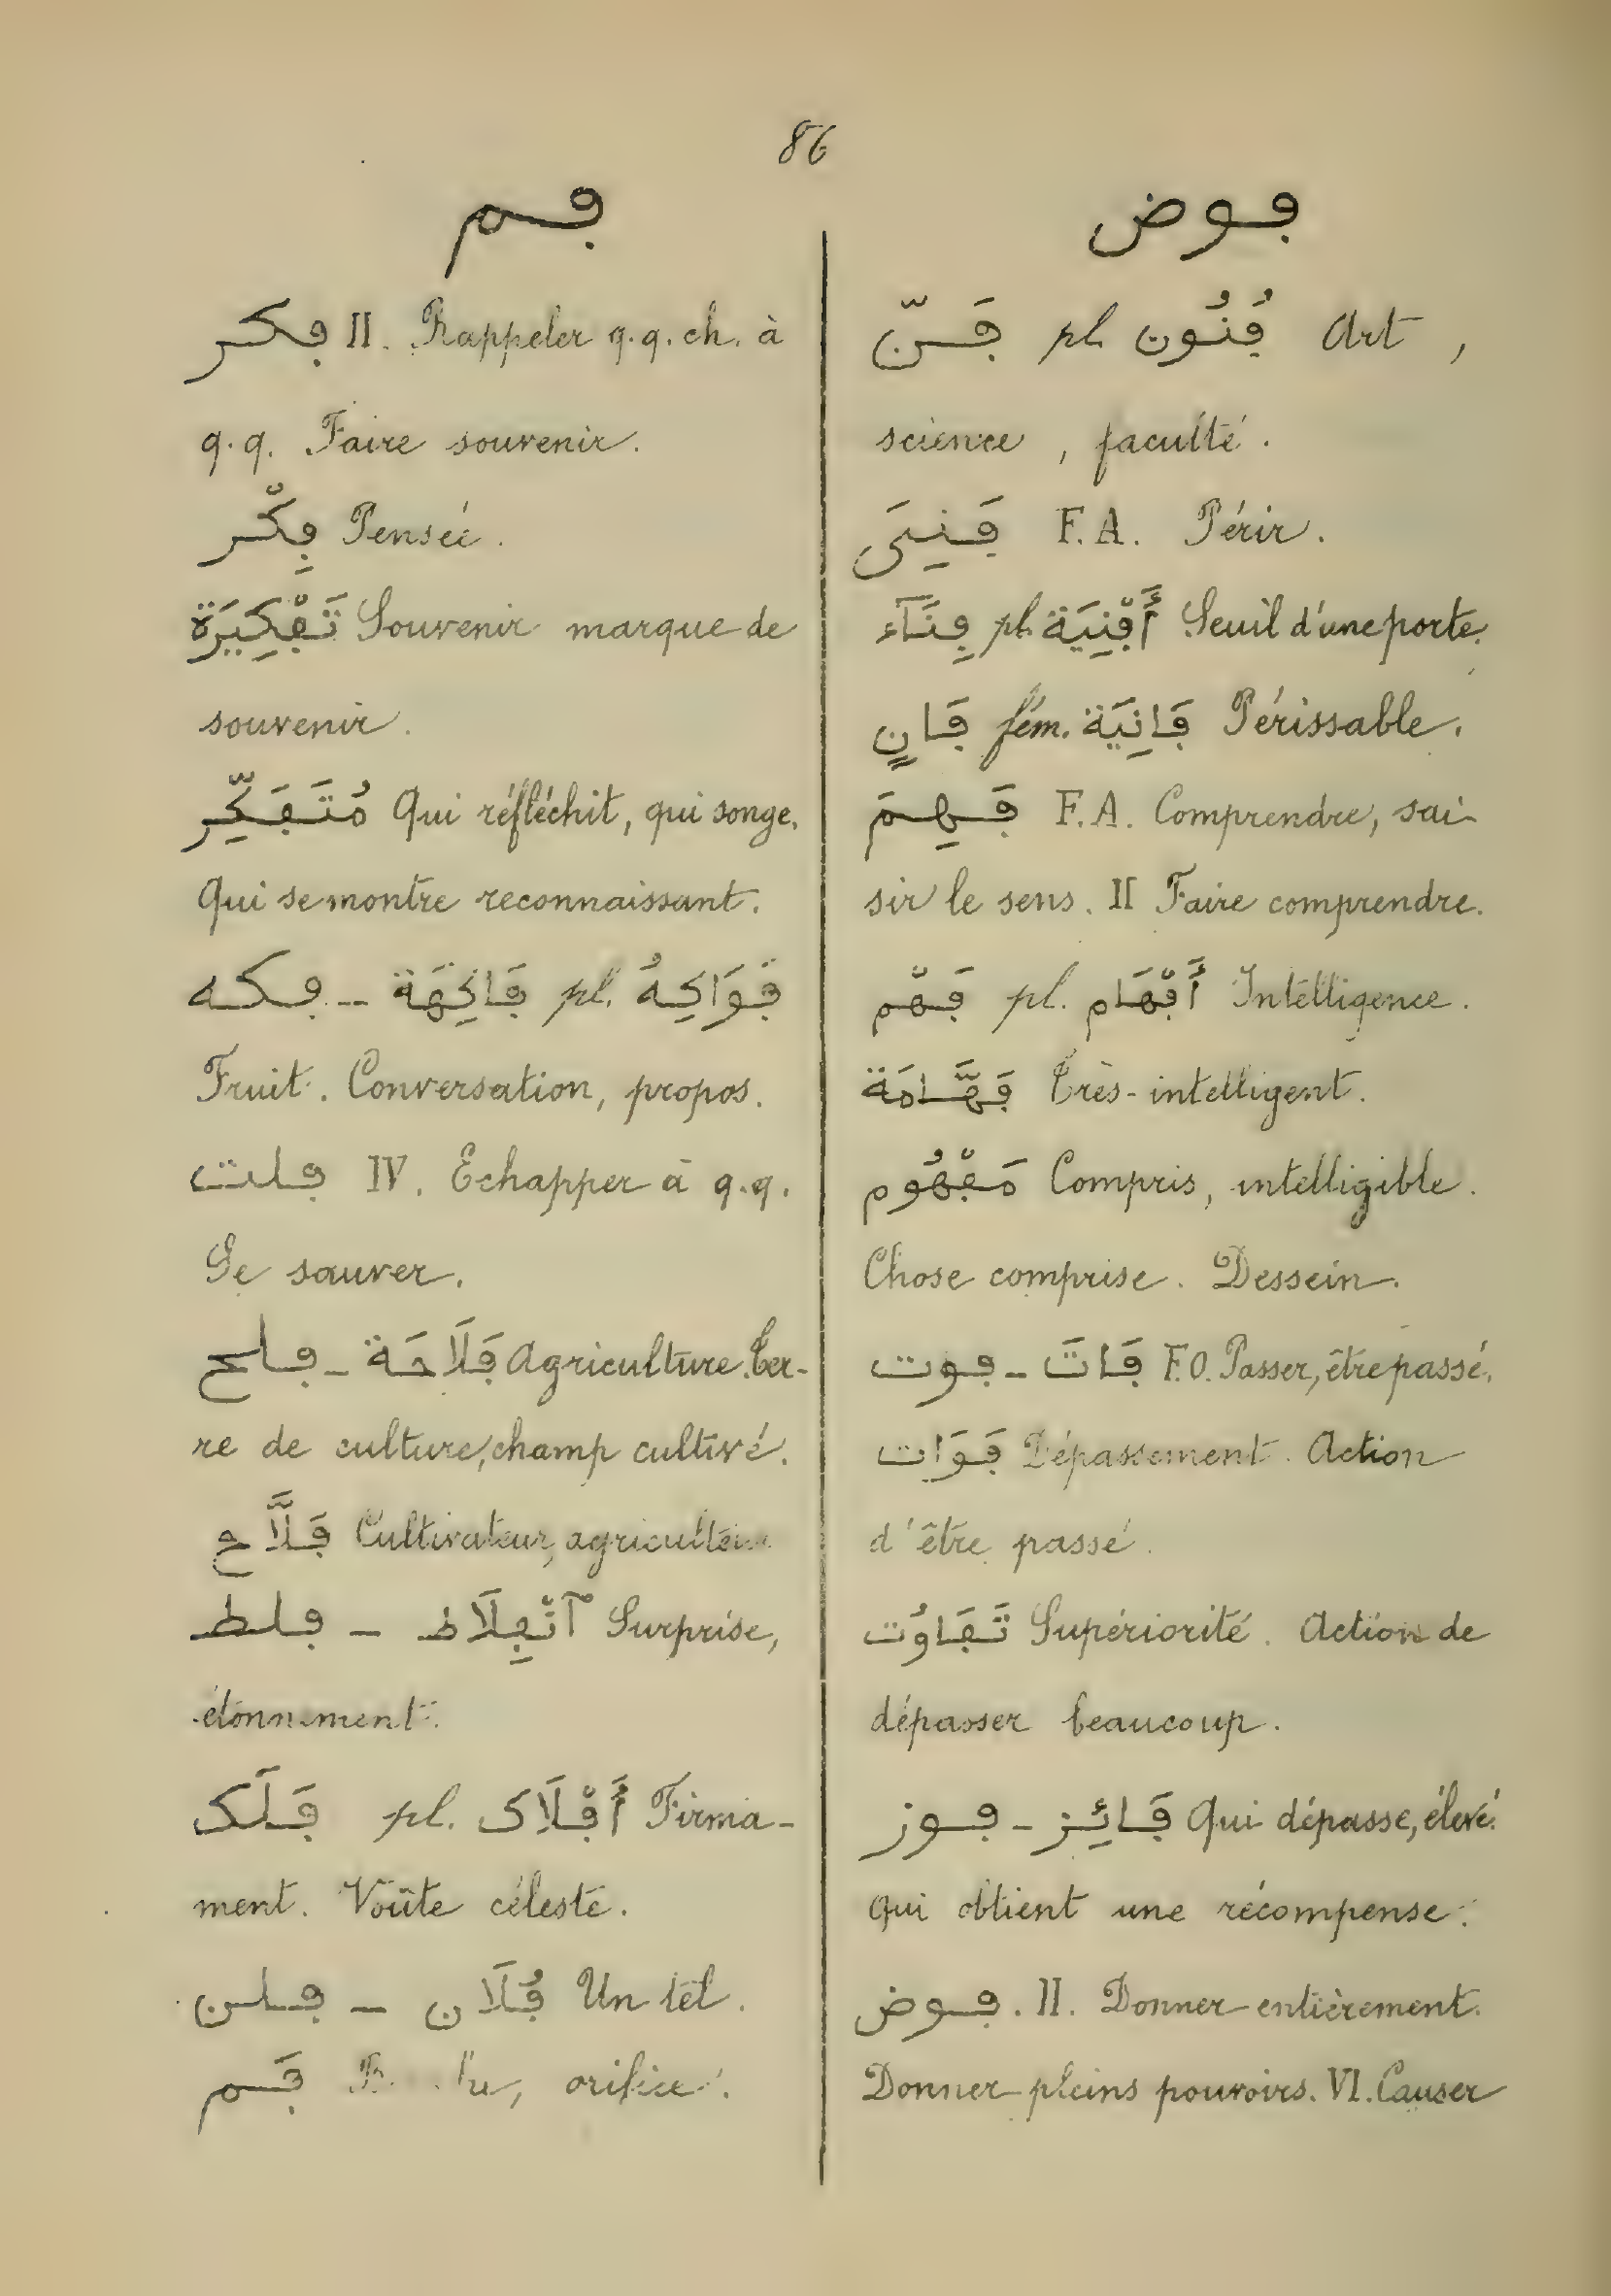 86
ڢم
ڢكر II. Rappeler q.q. ch. à
q.q. Faire souvenir.
ڢِكْر Pensée.
تَڢْكِيرَة Souvenir marque de
souvenir.
مُتَڢَكِّر Qui réfléchit, qui songe.
Qui se montre reconnaissant.
ڢكه – ڢَاكِهَة pl. ڢَوَاكِهُ
Fruit. Conversation, propos.
ڢلت IV. Echapper à q.q.
Se sauver.
ڢلح – ڢَلَاحَة Agriculture. Ter-
re de culture, champ cultivé.
ڢَلَّاح Cultivateur, agriculteur
ڢلط – آنْڢِلَاط Surprise,
étonnement.
ڢَلَك pl. أَڢْلَاك Firma-
ment. Voûte céleste.
ڢلن – ڢُلَان Un tel.
ڢَم orifice.
ڢوض
ڢَنّ pl. ڢُنُون Art,
science, faculté.
ڢَنِىَ F.A. Périr.
ڢِنَآء pl. أَڢْنِيَة Seuil d'une porte.
ڢَانٍ fém. ڢَانِيَة Périssable.
ڢَهِمَ F.A. Comprendre, sai-
sir le sens. II Faire comprendre.
ڢَهْم pl. أَڢْهَام Intelligence.
ڢَهَّامَة Très-intelligent.
مَڢْهُوم Compris, intelligible.
Chose comprise. Dessein.
ڢوت – ڢَاتَ F.O. Passer, être passé.
ڢَوَات Dépassement. Action
d'être passé.
تَڢَاوُت Supériorité. Action de
dépasser beaucoup.
ڢوز – ڢَائِز Qui dépasse, élevé.
qui obtient une récompense.
ڢوض. II. Donner entièrement.
Donner pleins pouvoirs. VI. Causer